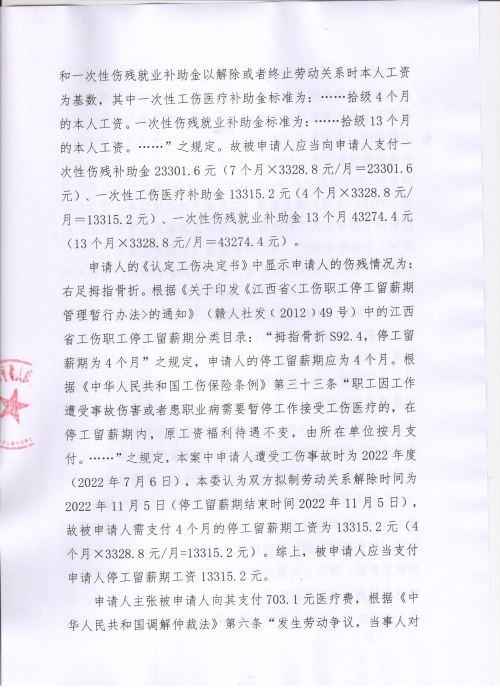 和一次性伤残就业补助金以解除或者终止劳动关系时本人工资
为基数，其中一次性工伤医疗补助金标准为：……拾级4个月
的本人工资。一次性伤残就业补助金标准为：……拾级13个月
的本人工资。……”之规定。故被申请人应当向申请人支付一
次性伤残补助金23301.6元（7个月×3328.8元/月＝23301.6
元）、一次性工伤医疗补助金13315.2元（4个月×3328.8元/
月＝13315.2元）、一次性伤残就业补助金13个月43274.4元
（13个月×3328.8元/月＝43274.4元）。
申请人的《认定工伤决定书》中显示申请人的伤残情况为：
右足拇指骨折。根据《关于印发《江西省<工伤职工停工留薪期
管理暂行办法>的通知》（赣人社发〔2012〕49号）中的江西
省工伤职工停工留薪期分类目录：“拇指骨折S92.4，停工留
薪期为4个月”之规定，申请人的停工留薪期应为4个月。根
据《中华人民共和国工伤保险条例》第三十三条“职工因工作
遭受事故伤害或者患职业病需要暂停工作接受工伤医疗的，在
停工留薪期内，原工资福利待遇不变，由所在单位按月支
付。……”之规定，本案中申请人遭受工伤事故时为2022年度
（2022年7月6日），本委认为双方拟制劳动关系解除时间为
2022年11月5日（停工留薪期结束时间2022年11月5日），
故被申请人需支付4个月的停工留薪期工资为13315.2元（4
个月×3328.8元/月=13315.2元）。综上，被申请人应当支付
申请人停工留薪期工资13315.2元。
申请人主张被申请人向其支付703.1元医疗费，根据《中
华人民共和国调解仲裁法》第六条“发生劳动争议，当事人对